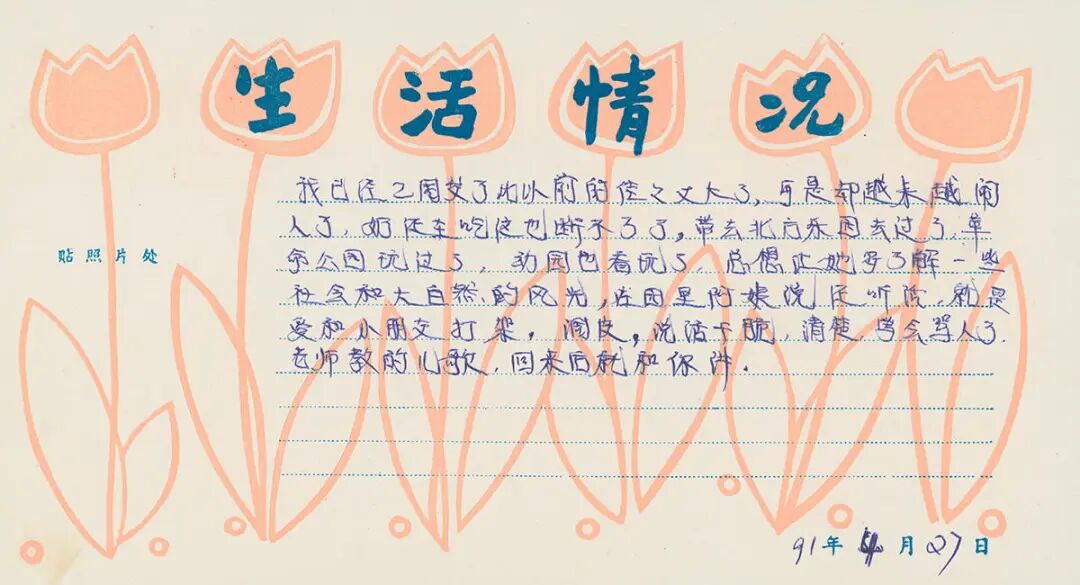 生活情况
我已经2周岁了比以前的个又大了,可是却越来越闹
人了,奶还在吃但也断不了了,带去北方乐园去过了,
公园玩过了,动园也看玩了,总想让她多了解一些
社会和大自然的风光,在园里阿姨说还听话,就是
爱和小朋友打架,调皮,说话干脆,清楚,学会骂人了
老师教的儿歌,回来后就和你讲.
贴照片处
91年4月27日